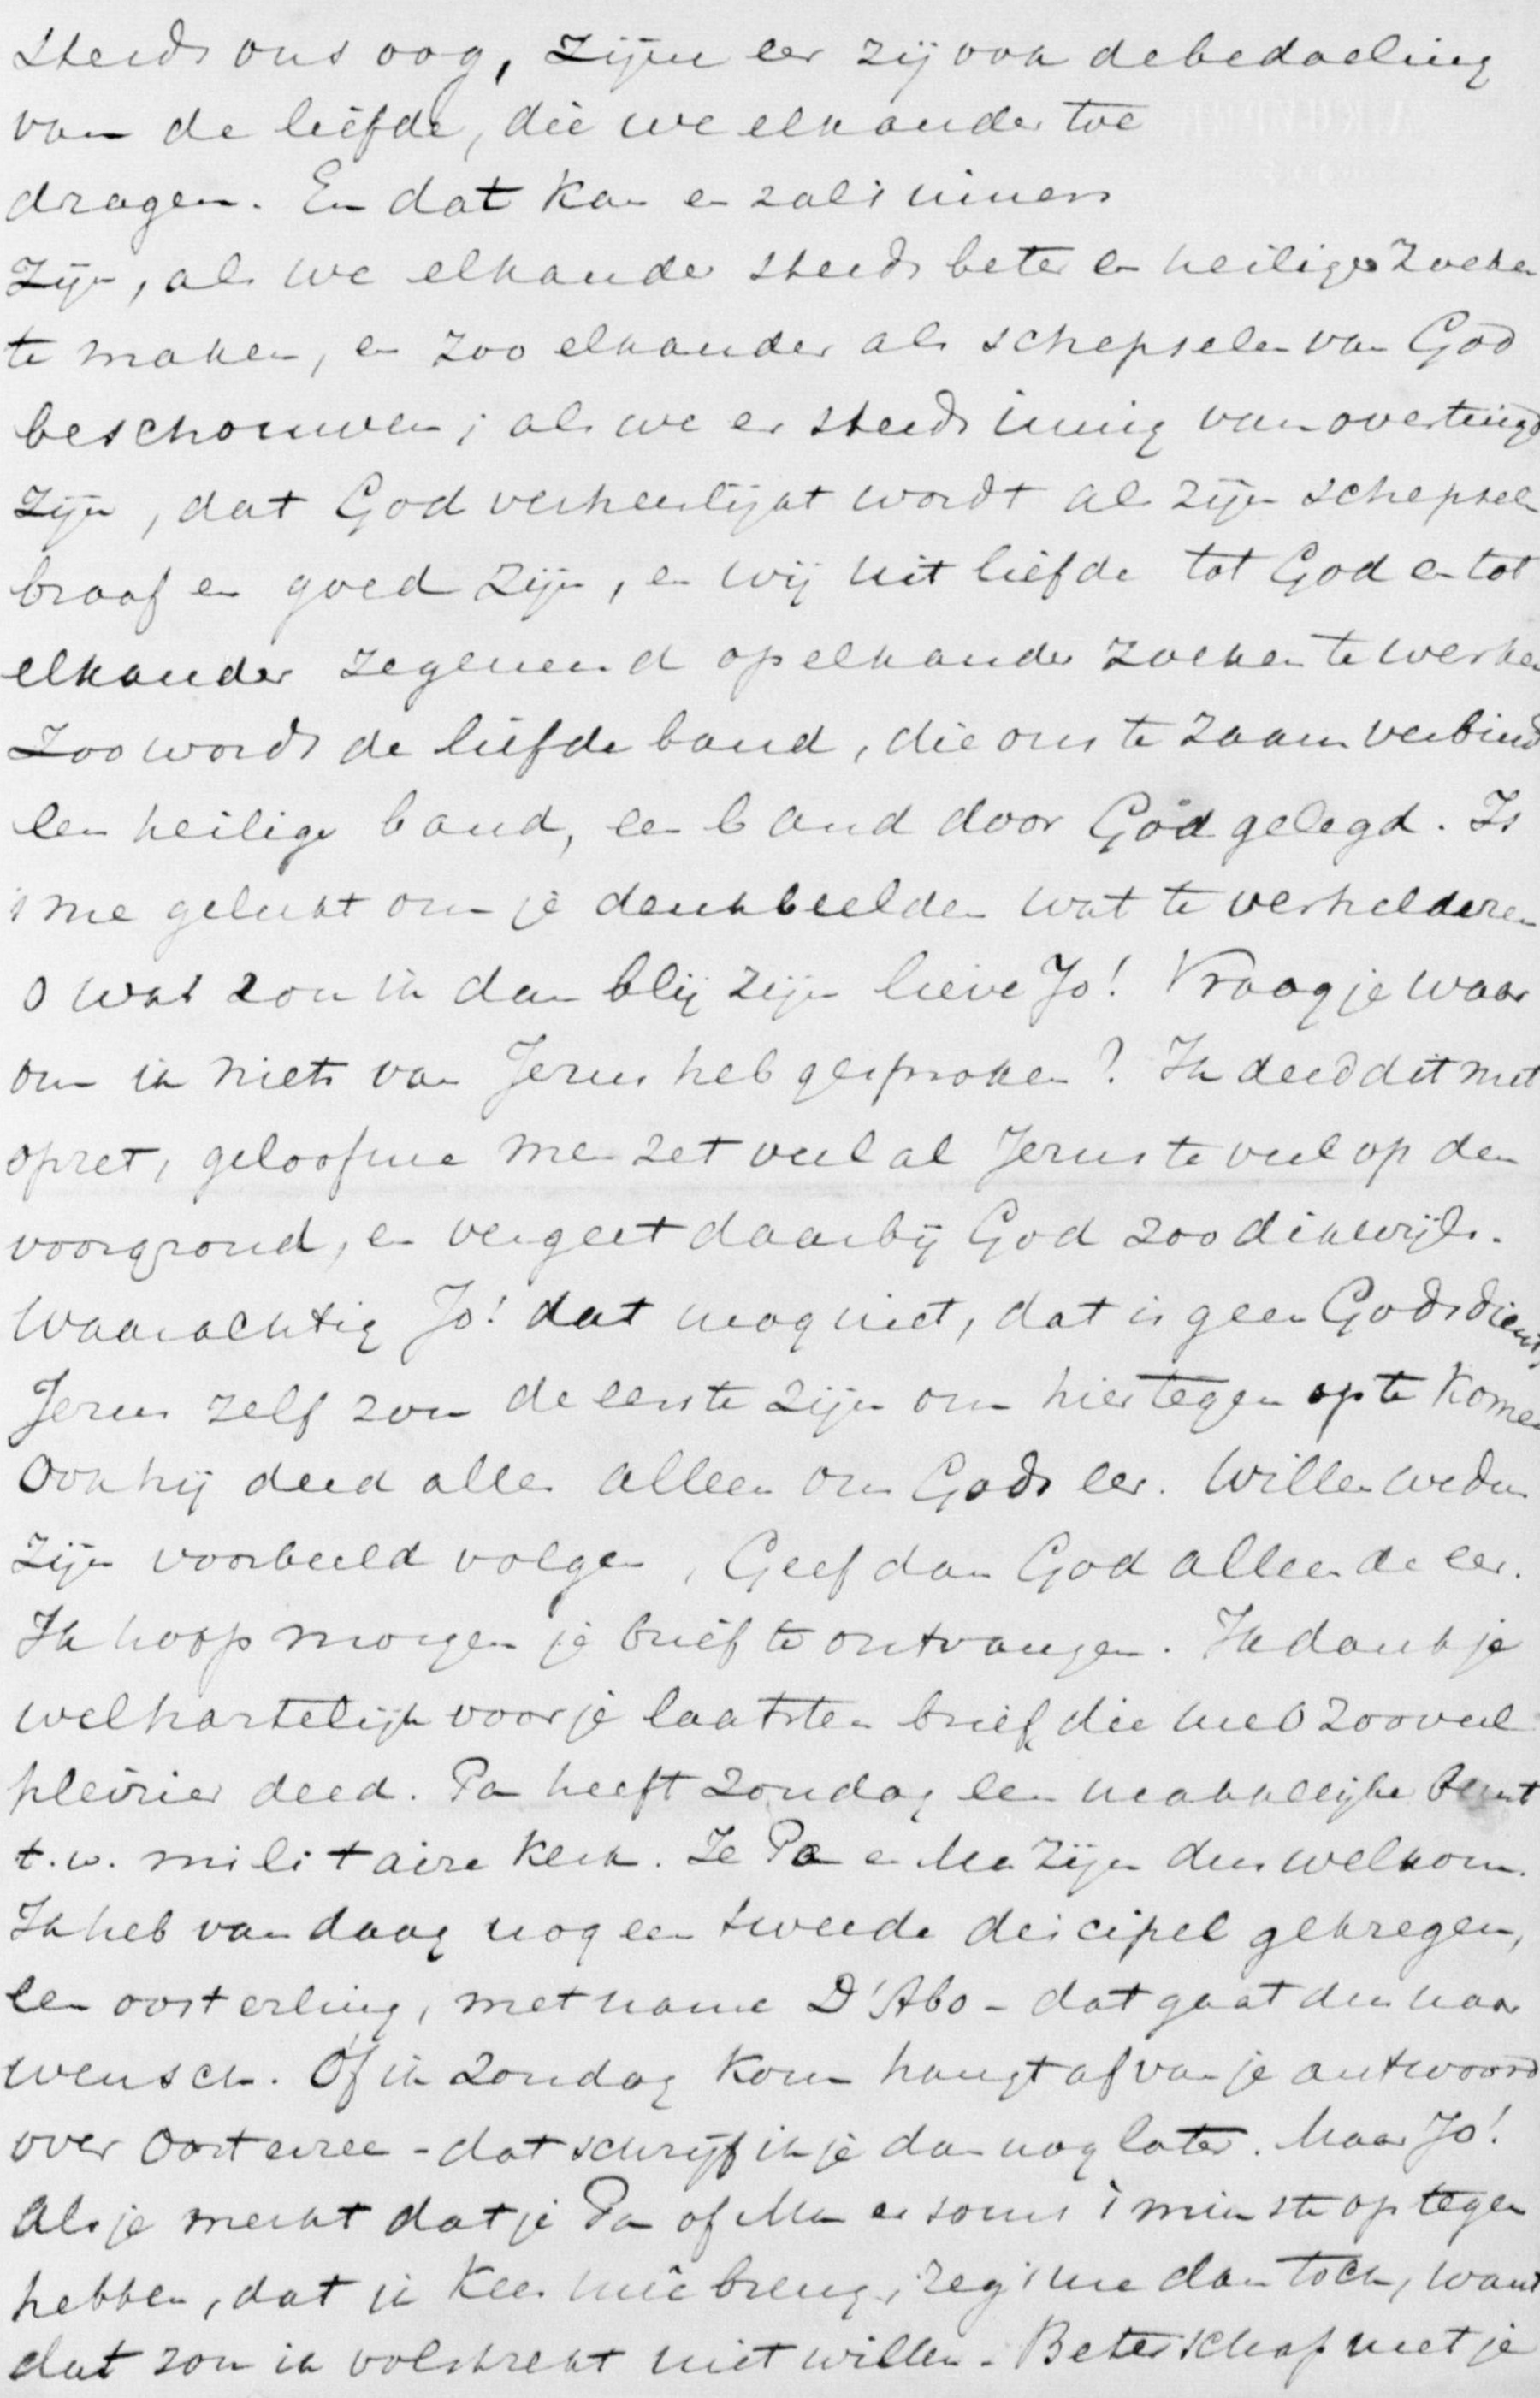 steeds ons oog, zijne eer zij ook de bedoeling
van de liefde, die we elkander toe
dragen. En dat kan en zal 't immers
zijn, als we elkander steeds beter en heiliger zoeken
te maken, en zoo elkander als schepselen van God
beschouwen; als we er steeds innig van overtuigd
zijn, dat God verheerlijkt wordt als zijn schepselen
braaf en goed zijn, en wij uit liefde tot God en tot
elkander zegenend op elkander zoeken te werken
Zoo wordt de liefde band, die ons te zaam verbind
een heilige band, een band door God gelegd. Is
't me gelukt om je denkbeelden wat te verhelderen
O wat zou ik dan blij zijn lieve Jo! Vraag je waar
om ik niets van Jezus heb gesproken? Ik deed dit met
opzet, geloof me men zet veelal Jezus te veel op den
voorgrond, en vergeet daarbij God zoo dikwijls.
Waarachtig Jo! dat mag niet, dat is geen Godsdienst,
Jezus zelf zou de eerste zijn om hiertegen op te komen
Ook hij deed alles alleen om Gods eer. Willen we dus
zijn voorbeeld volgen, Geef dan God alleen de eer.
Ik hoop morgen je brief te ontvangen. Ik dank je
wel hartelijk voor je laatsten brief die me O zooveel
pleizier deed. Pa heeft Zondag een makkelijke beurt
t.w. militaire kerk. Je Pa en Ma zijn dus welkom.
Ik heb van daag nog een tweede discipel gekregen,
een oosterling, met name D'Abo - dat gaat dus naar
wensch. Of ik Zondag kom hangt af van je antwoord
over - dat schrijf ik je dan nog later. Maar Jo!
Als je merkt dat je Pa of Ma er soms 't minste op tegen
hebben, dat ik Kees meêbreng, zeg 't me dan toch, want
dat zou ik volstrekt niet willen - Beterschap met je